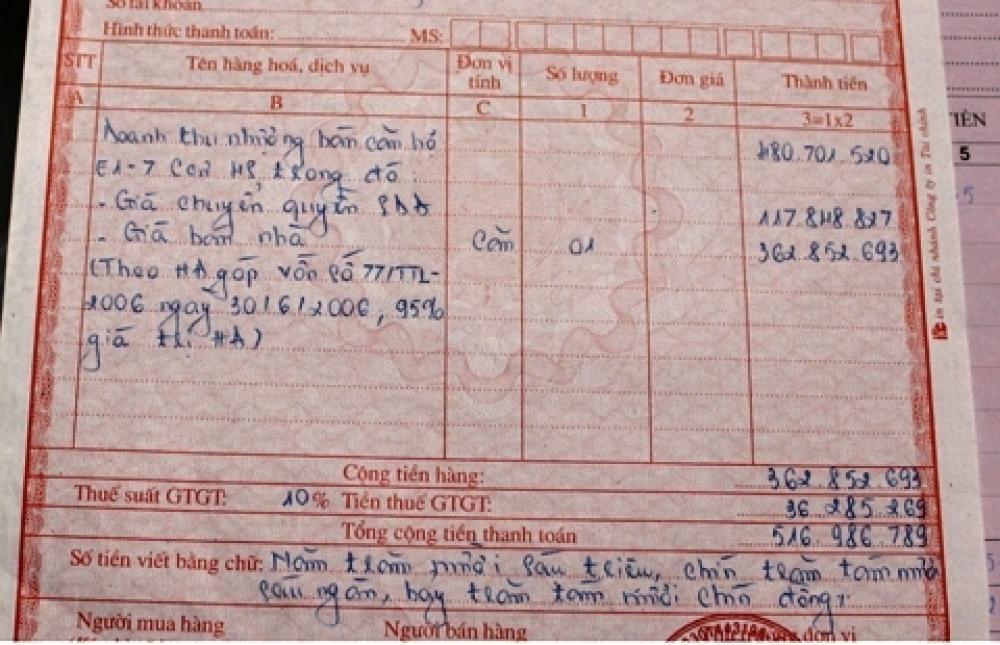 Số tài khoản
Hình thức thanh toán: MS:
STT Tên hàng hoá, dịch vụ Đơn vị tính Số lượng Đơn giá Thành tiền
A B C 1 2 3=1x2
Doanh thu nhượng bán căn hộ 480.701.520
E1-7 Cao ốc trong đó:
- Giá chuyển quyền SDĐ 117.848.827
- Giá bán nhà Căn 01 362.852.693
(Theo HĐ góp vốn số 77/TTL-
2006 ngày 30/6/2006, 95%
giá trị HĐ)
Cộng tiền hàng: 362.852.693
Thuế suất GTGT: 10% Tiền thuế GTGT: 36.285.269
Tổng cộng tiền thanh toán 516.986.789
Số tiền viết bằng chữ: Năm trăm mười sáu triệu, chín trăm tám mươi
sáu ngàn, bảy trăm tám mươi chín đồng.
Người mua hàng Người bán hàng đơn vị
in tại chi nhánh Công ty in Tài chính
TIỀN
5